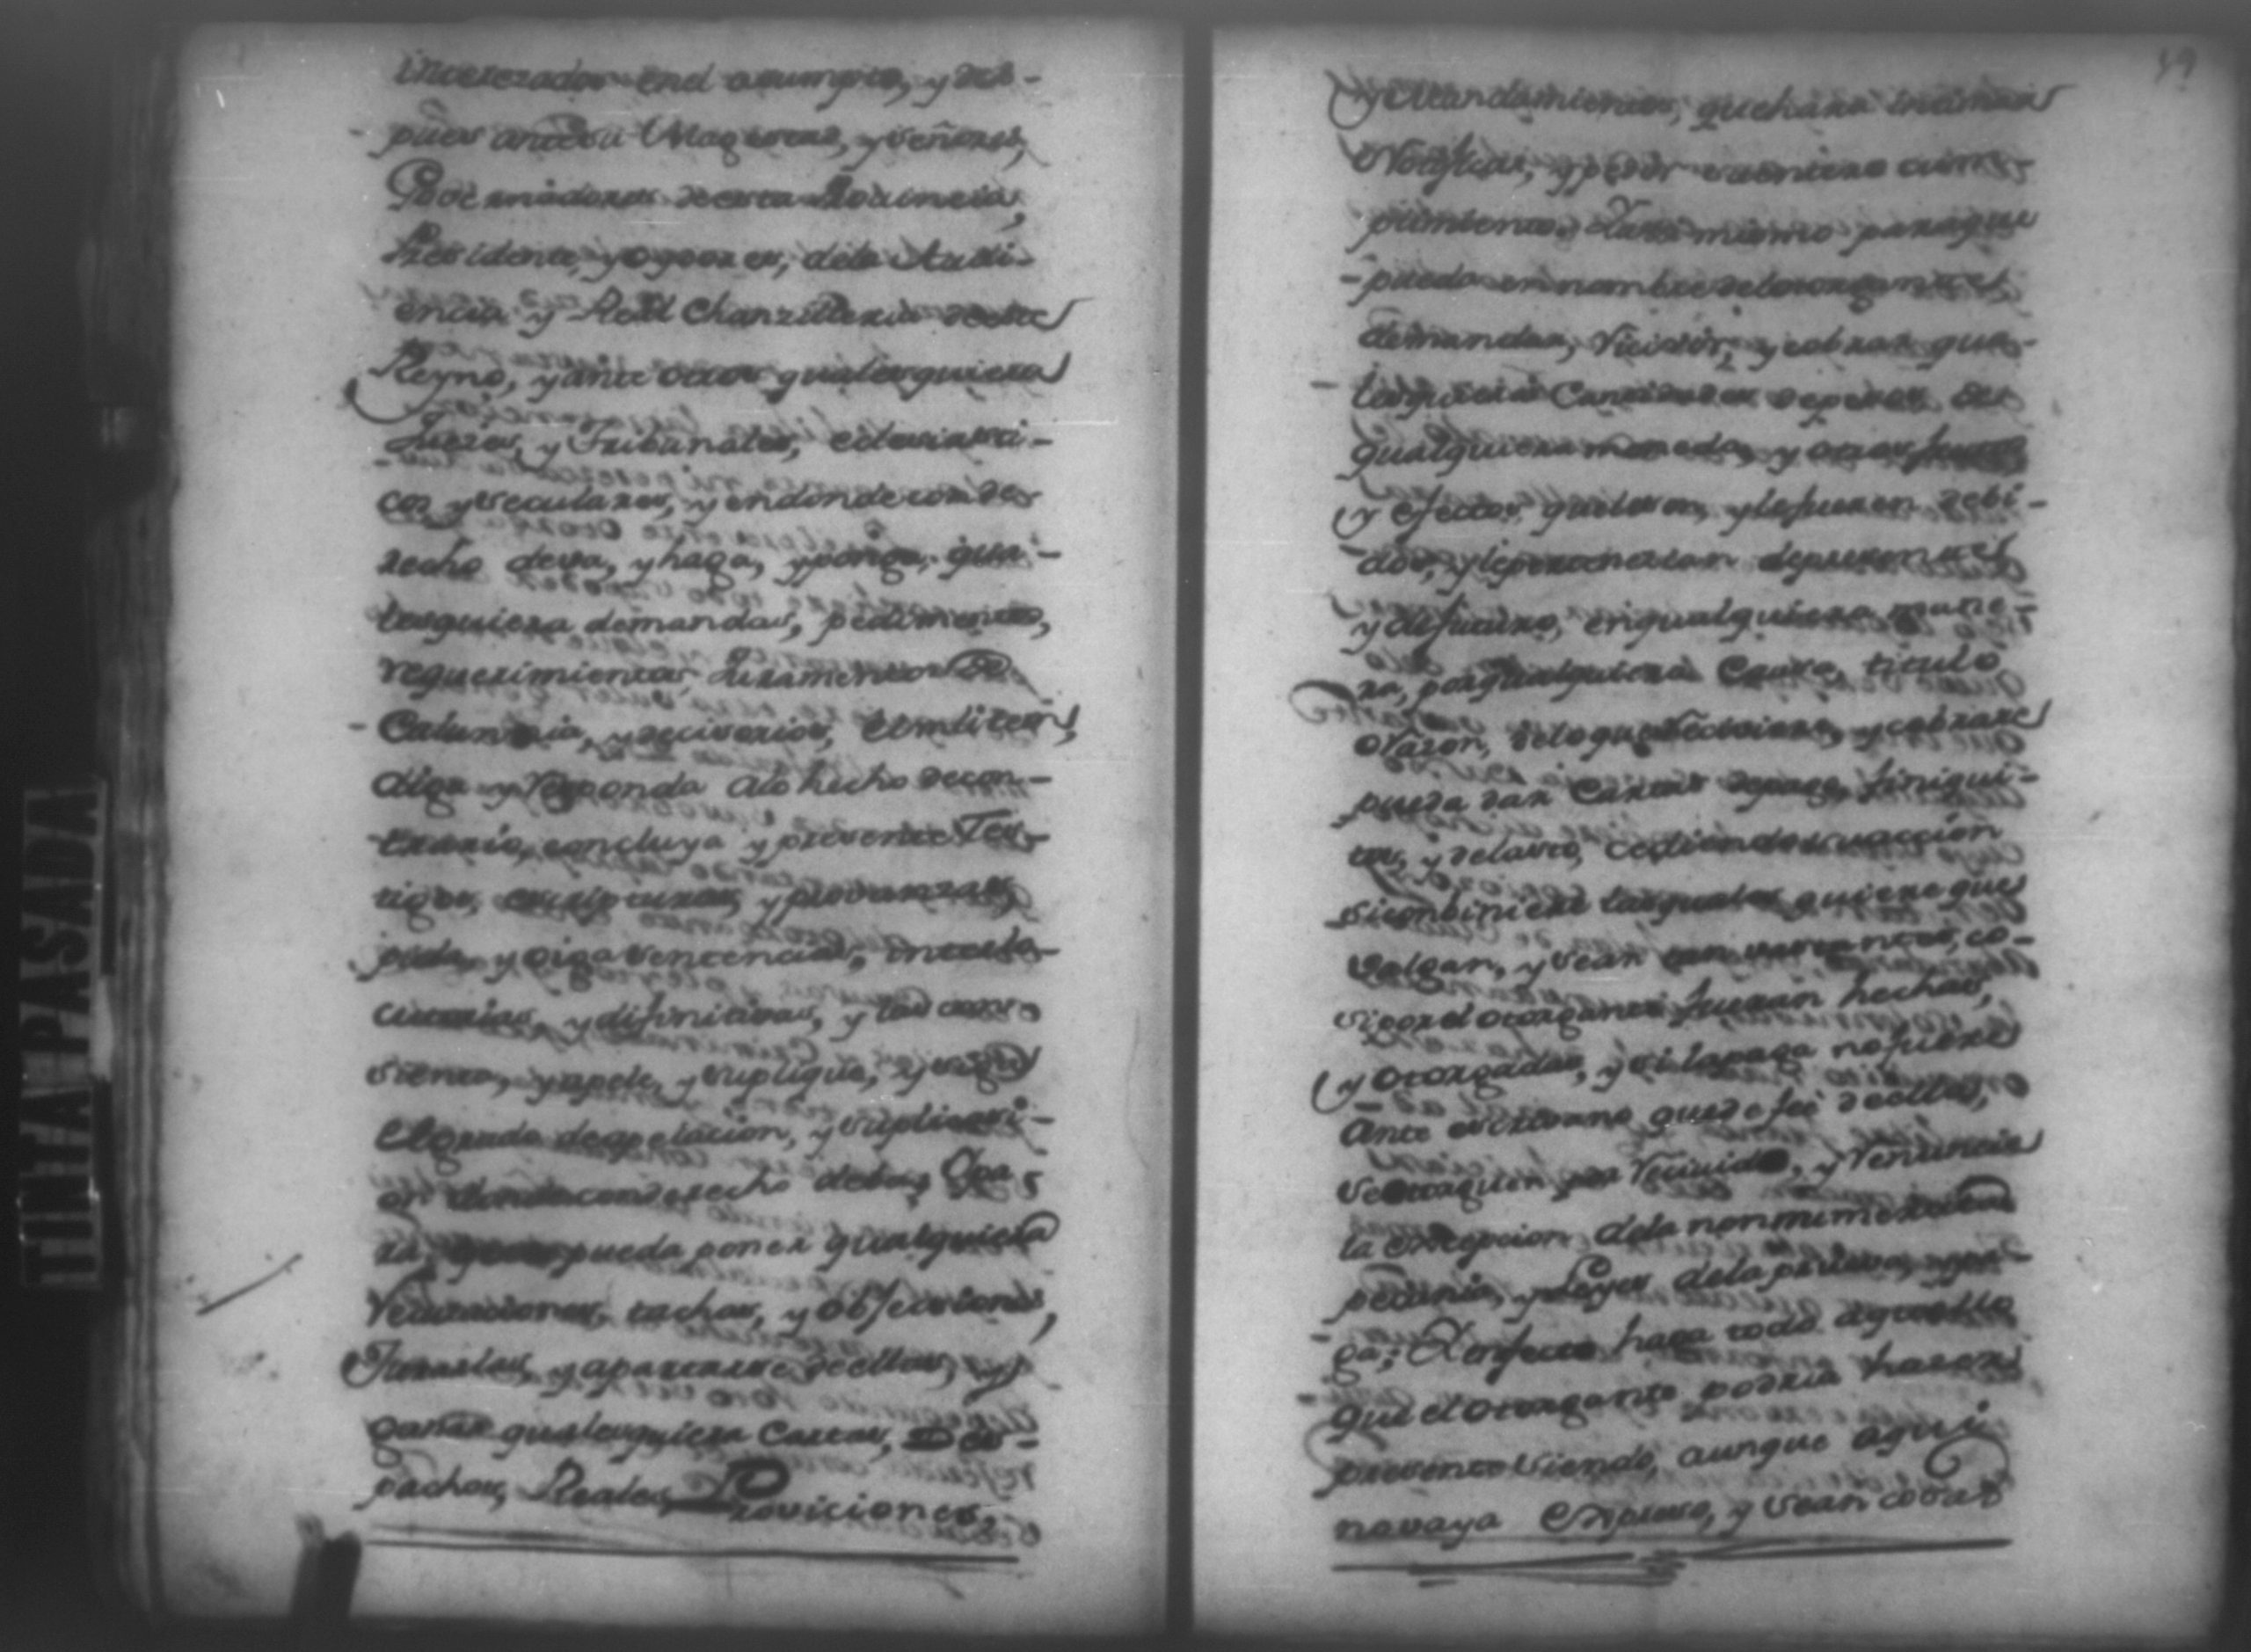 interezados en el asumpto, y des-
pues ante su Magestad, y señores,
Governadores de esta Provincia,
Presidente, y oydores, dela Audi-
encia y Real Chanzilleria de este
Reyno, y ante otros qualesquiera
Juezes, y Tribunales, eclesiasti-
cos y seculares, y en donde con de-
recho deva, y haga, y ponga, qua-
lesquiera demandas, pedimentos,
requerimientos, Juramentos De
Calumnia, y decisorios, in litem,
diga y responda alo hecho decon-
trario, concluya y presente Tes-
tigos, escripturas, y provanzas,
pida, y oiga sentencias, interlo-
cutorias, y difinitivas, y las con-
sienta, y apele, y suplique, y siga
el grado de apelacion, y suplicaci-
on donde con derecho deba, Opa-
ra que pueda poner qualquiera
recusaciones, tachas, y objecciones,
Jurarlas, y apartarse de ellas, y
ganar qualesquiera Cartas, Des-
pachos, Reales Proviciones,
49
y Mandamientos, que hara intimar
Notificar, y pedir su entero cum-
plimiento. Y asi mismo para que
pueda en nombre del otorgante
demandar, recivir, y cobrar qua-
lesquiera Cantidades de pesos, de
qualquiera moneda, y otros frutos
y efectos que le son, y le fueren debi-
dos, y le pertenezcan de presente
y de futuro, en qualquiera mane-
ra, por qualquiera Causa, titulo
o razon, de lo que reciviere, y cobrare
pueda dar Cartas de pago, finiqui-
tos, y delasto, cediendo su accion
si conbiniere las quales quiere que
valgan, y sean tan bastantes, co-
si por el otorgante fueran hechas,
y otorgadas, y si la paga no fuere
Ante escribano que de fee de ellas,
se otorguen por recivido, y renuncia
la excepcion dela non numerata
pecunia, y Leyes dela prueba, y pa-
ga; Y en efecto haga todo aquello
que el otorgante podria hazer
presente siendo, aunque aqui
no vaya Expreso, y sean cosas
TINTA PASADA